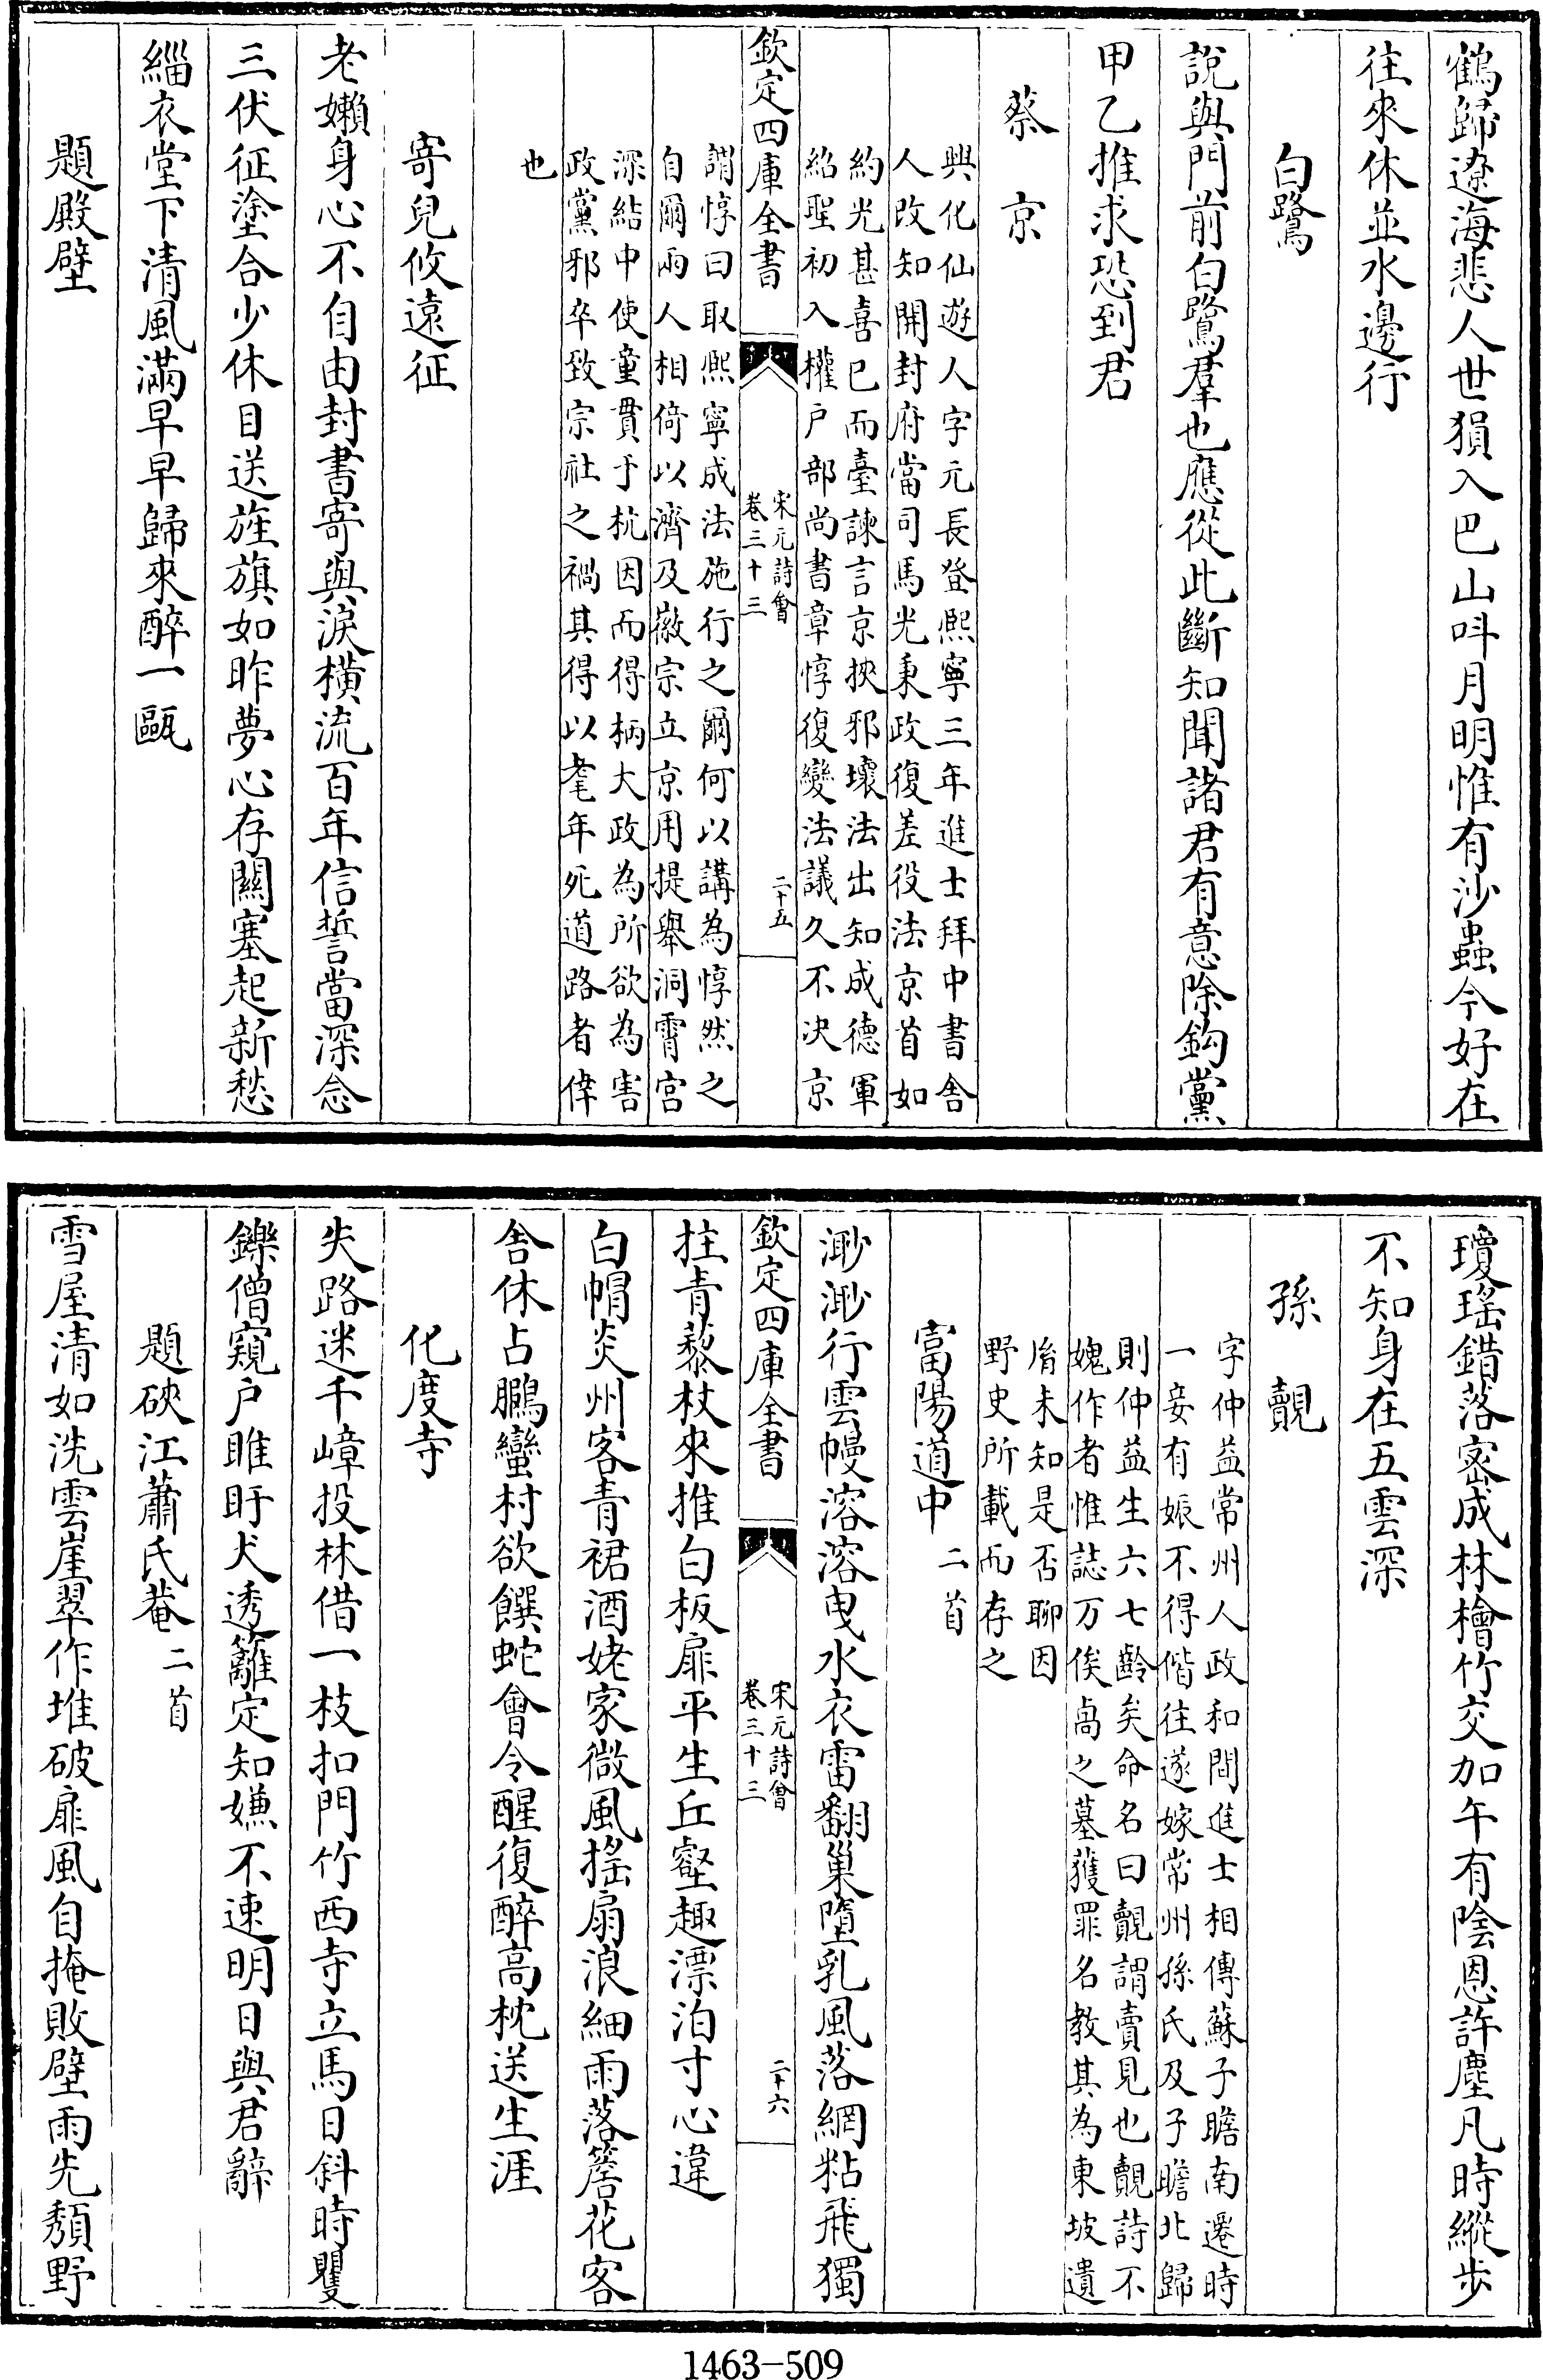 鶴歸遼海悲人世狽入巴山呌月明惟有沙蟲今好在
往來休並水邊行
白鷺
說與門前白鷺羣也應從此斷知聞諸君有意除鈎黨
甲乙推求恐到君
蔡京
興化仙遊人字元長登熙寧三年進士拜中書舍
人改知開封府當司馬光秉政復差役法京首如
約光甚喜已而臺諫言京挾邪壞法出知成德軍
紹聖初入權户部尚書章惇復變法議久不决京
欽定四庫全書
宋元詩會
卷三十三
二十五
謂惇曰取熙寧成法施行之爾何以講為惇然之
自爾兩人相倚以濟及徽宗立京用提舉洞霄宫
深結中使童貫于杭因而得柄大政為所欲為害
政黨邪卒致宗社之禍其得以耄年死道路者倖
也
寄兒攸遠征
老嬾身心不自由封書寄與淚橫流百年信誓當深念
三伏征塗合少休目送旌旗如昨夢心存關塞起新愁
緇衣堂下清風滿早早歸來醉一甌
題殿壁
瓊瑤錯落宻成林檜竹交加午有陰恩許塵凡時縱步
不知身在五雲深
孫覿
字仲益常州人政和間進士相傳蘇子瞻南遷時
一妾有娠不得偕往遂嫁常州孫氏及子瞻北歸
則仲益生六七齡矣命名曰覿謂賣見也覿詩不
媿作者惟誌万俟卨之墓獲罪名教其為東坡遺
胤未知是否聊因
野史所載而存之
富陽道中二首
渺渺行雲幔溶溶曳水衣雷翻巢墮乳風落網粘飛獨
欽定四庫全書
宋元詩會
卷三十三
二十六
拄青藜杖來推白板扉平生丘壑趣漂泊寸心違
白帽炎州客青裙酒姥家微風揺扇浪細雨落簷花客
舍休占鵩蠻村欲饌蛇會令醒復醉高枕送生涯
化度寺
失路迷千嶂投林借一枝扣門竹西寺立馬日斜時矍
鑠僧窺户睢盱犬透籬定知嫌不速明日與君辭
題硤江蕭氏菴二首
雪屋清如洗雲崖翠作堆破扉風自掩敗壁雨先頽野
1463-509